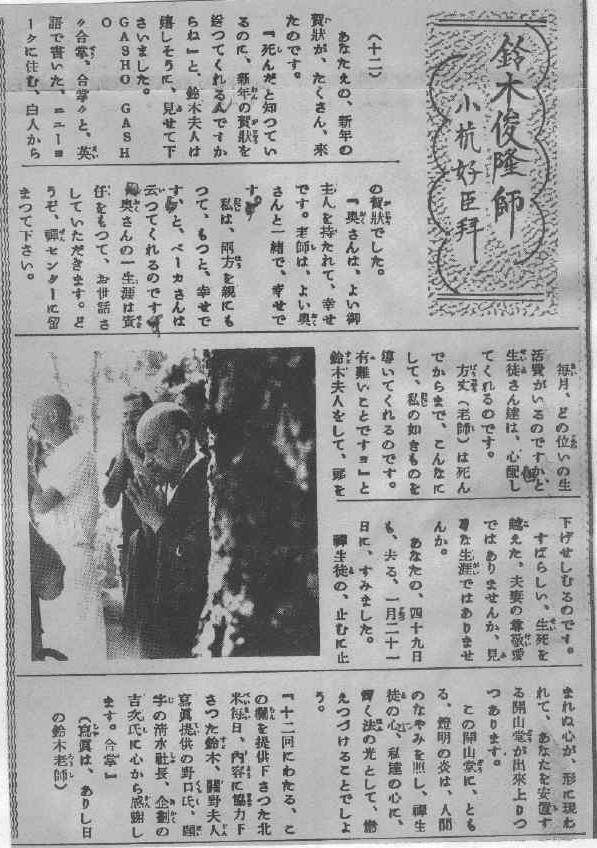 鈴木俊隆師
小杭好臣拜
(十二)
あなたえの、新年の
賀狀が、たくさん、來
たのです。
『死んだと知つてい
るのに、新年の賀狀を
送つてくれる人ですか
らね』と、鈴木夫人は
嬉しそうに、見せて下
さいました。
GASHO GASH
O
〃合掌、合掌〃と、英
語で書いた、ニューヨ
ークに住む、白人から
の賀狀でした。
『奥さんは、よい御
主人を持たれて、幸せ
です。老師は、よい奥
さんと一緒で、幸せで
す。
私は、兩方を親にも
つて、もつと、幸せで
す、と、ベーカさんは
云つてくれるのです
奥さんの一生涯は責
任をもつて、お世話さ
していただきます。ど
うぞ、禪センターに留
まつて下さい。
毎月、どの位いの生
活費がいるのですかと
生徒さん達は、心配し
てくれるのです。
方丈(老師)は死ん
でからまで、こんなに
して、私の如きものを
導いてくれるのです。
有難いことですョ』と
鈴木夫人をして、頭を
下げせしむるのです。
すばらしい、生死を
越えた。夫妻の尊敬愛
ではありませんか、見
事な生涯ではありませ
んか。
あなたの、四十九日
も、去る、一月二十一
日に、すみました。
禪生徒の、止むに止
まれぬ心が、形に現わ
れて、あなたを安置す
る開山堂が出來上りつ
つあります。
この開山堂に、とも
る、燈明の炎は、人間
のなやみを照し、禪生
徒の心、私達の心に、
輝く法の光として、燃
えつづけることでしょ
う。
『十二回にわたる、こ
の欄を提供下さつた北
米每日、內容に協力下
さつた鈴木、關野夫人
寫眞提供の野口氏、題
字の淸水社長、企劃の
吉次氏に心から感謝し
ます。合掌』
(寫眞は、ありし日
の鈴木老師)